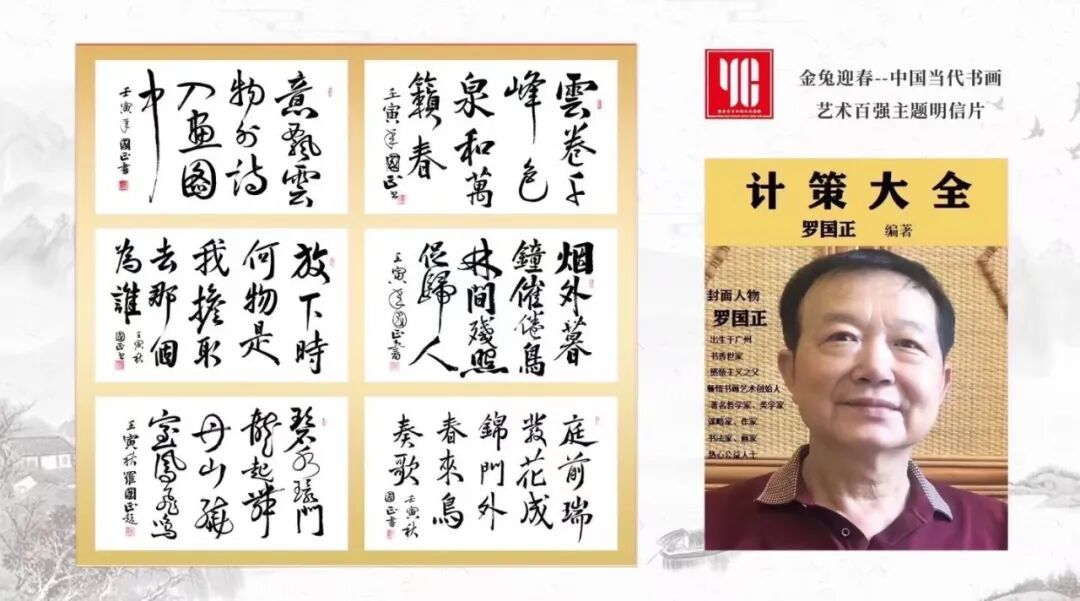 意飄雲
物外詩
入畫圖
中
壬寅年國正書
雲卷千
峰色
泉和萬
籟春
壬寅年國正書
放下時
何物是
我擔取
去那個
為誰
壬寅秋
國正書
烟外暮
鐘催倦鳥
林間殘照
促歸人
壬寅年國正書
碧水環門
龍起舞
丹山繞
室鳳飛鳴
壬寅秋羅國正題
庭前瑞
發花成
錦門外
春來鳥
奏歌
壬寅秋
國正書
金兔迎春--中国当代书画
艺术百强主题明信片
计策大全
罗国正 编著
封面人物
罗国正
出生于广州
书香世家
感悟主义之父
悟书画艺术创始人
著名哲学家、美学家
谋略家、作家
书法家、画家
热心公益人士